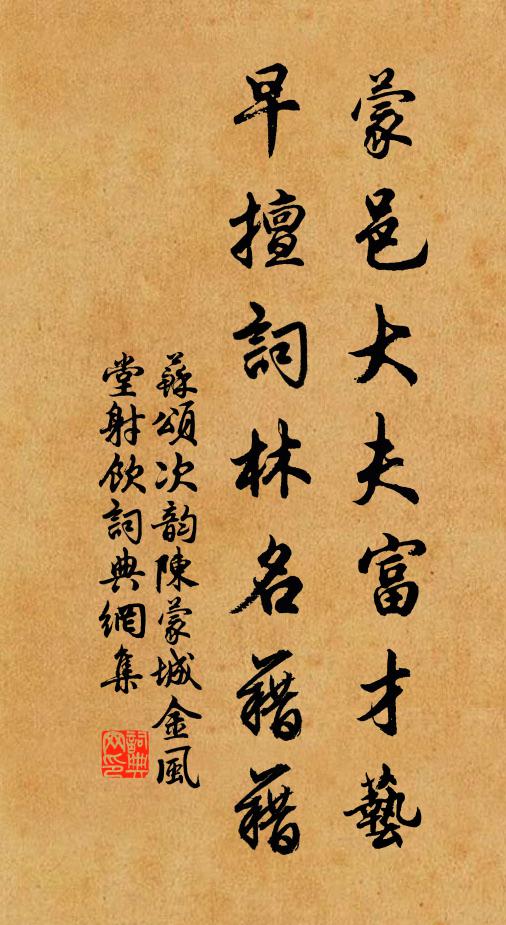 蒙邑大夫富才藝
早擅詞林名籍籍
蘇頌次韵陳蒙城金風
堂射飲詞典網集
詞典網印